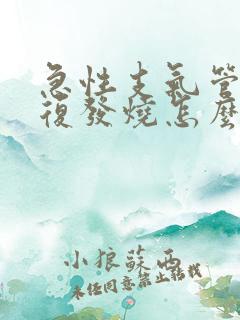 急性支氣管
復發燒怎麼
小狼蘇西
未经同意禁止转载